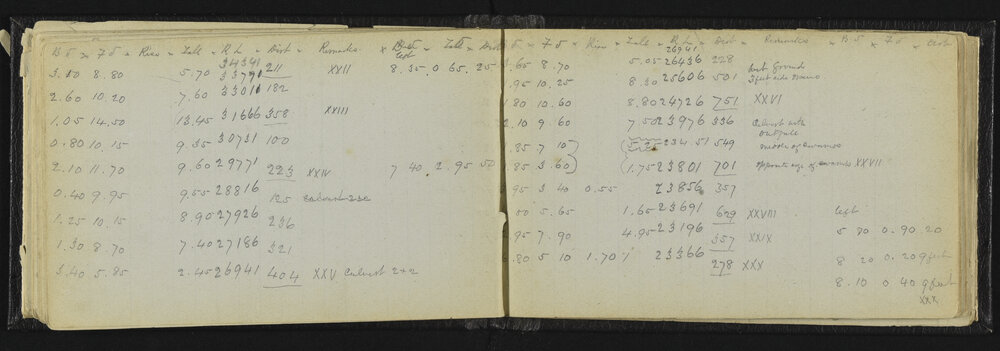 B S × F S × Rise × Fall × R. L × Dist × Remarks × Fall × Dist
34341
3.10 8.80 5.70 33791 211 XXII 8.35.0 65.25
2.60 10.20 7.60 33011 182
1.05 14.50 13.45 31666 358 XXIII
0.80 10.15 9.35 30731 100
2.10 11.70 9.60 29771 223 XXIV 7 40.2.95 50
0.40 9.95 9.55 28816 125 Culvert 2×2
1.25 10.15 8.90 27926 236
1.30 8.70 7.40 27186 321
3.40 5.85 2.45 26941 404 XXV Culvert 2×2
S × F S × Rise × Fall × R. L × Dist × Remarks × B S × F S ×
26941
.65 8.70 5.05 26436 228
.95 10.25 8.30 25606 501
.80 10.60 8.80 24726 751 XXVI
2.10 9.60 7.50 23976 336 Culvert with
outfall
.85 7.10 (5.25 23451 549 middle of
.85 3.60 (1.75 23801 701 opposite edge of XXVII
.95 3 40 0.55 23856 357
.00 5.65 1.65 23691 629 XXVIII left
.95 7.90 4.95 23196 357 XXIX 5 80 0.90 20
.80 5 10 1.70 23366 278 XXX 8 20 0.20 9 feet
8.10 0 40 9 feet
XXX